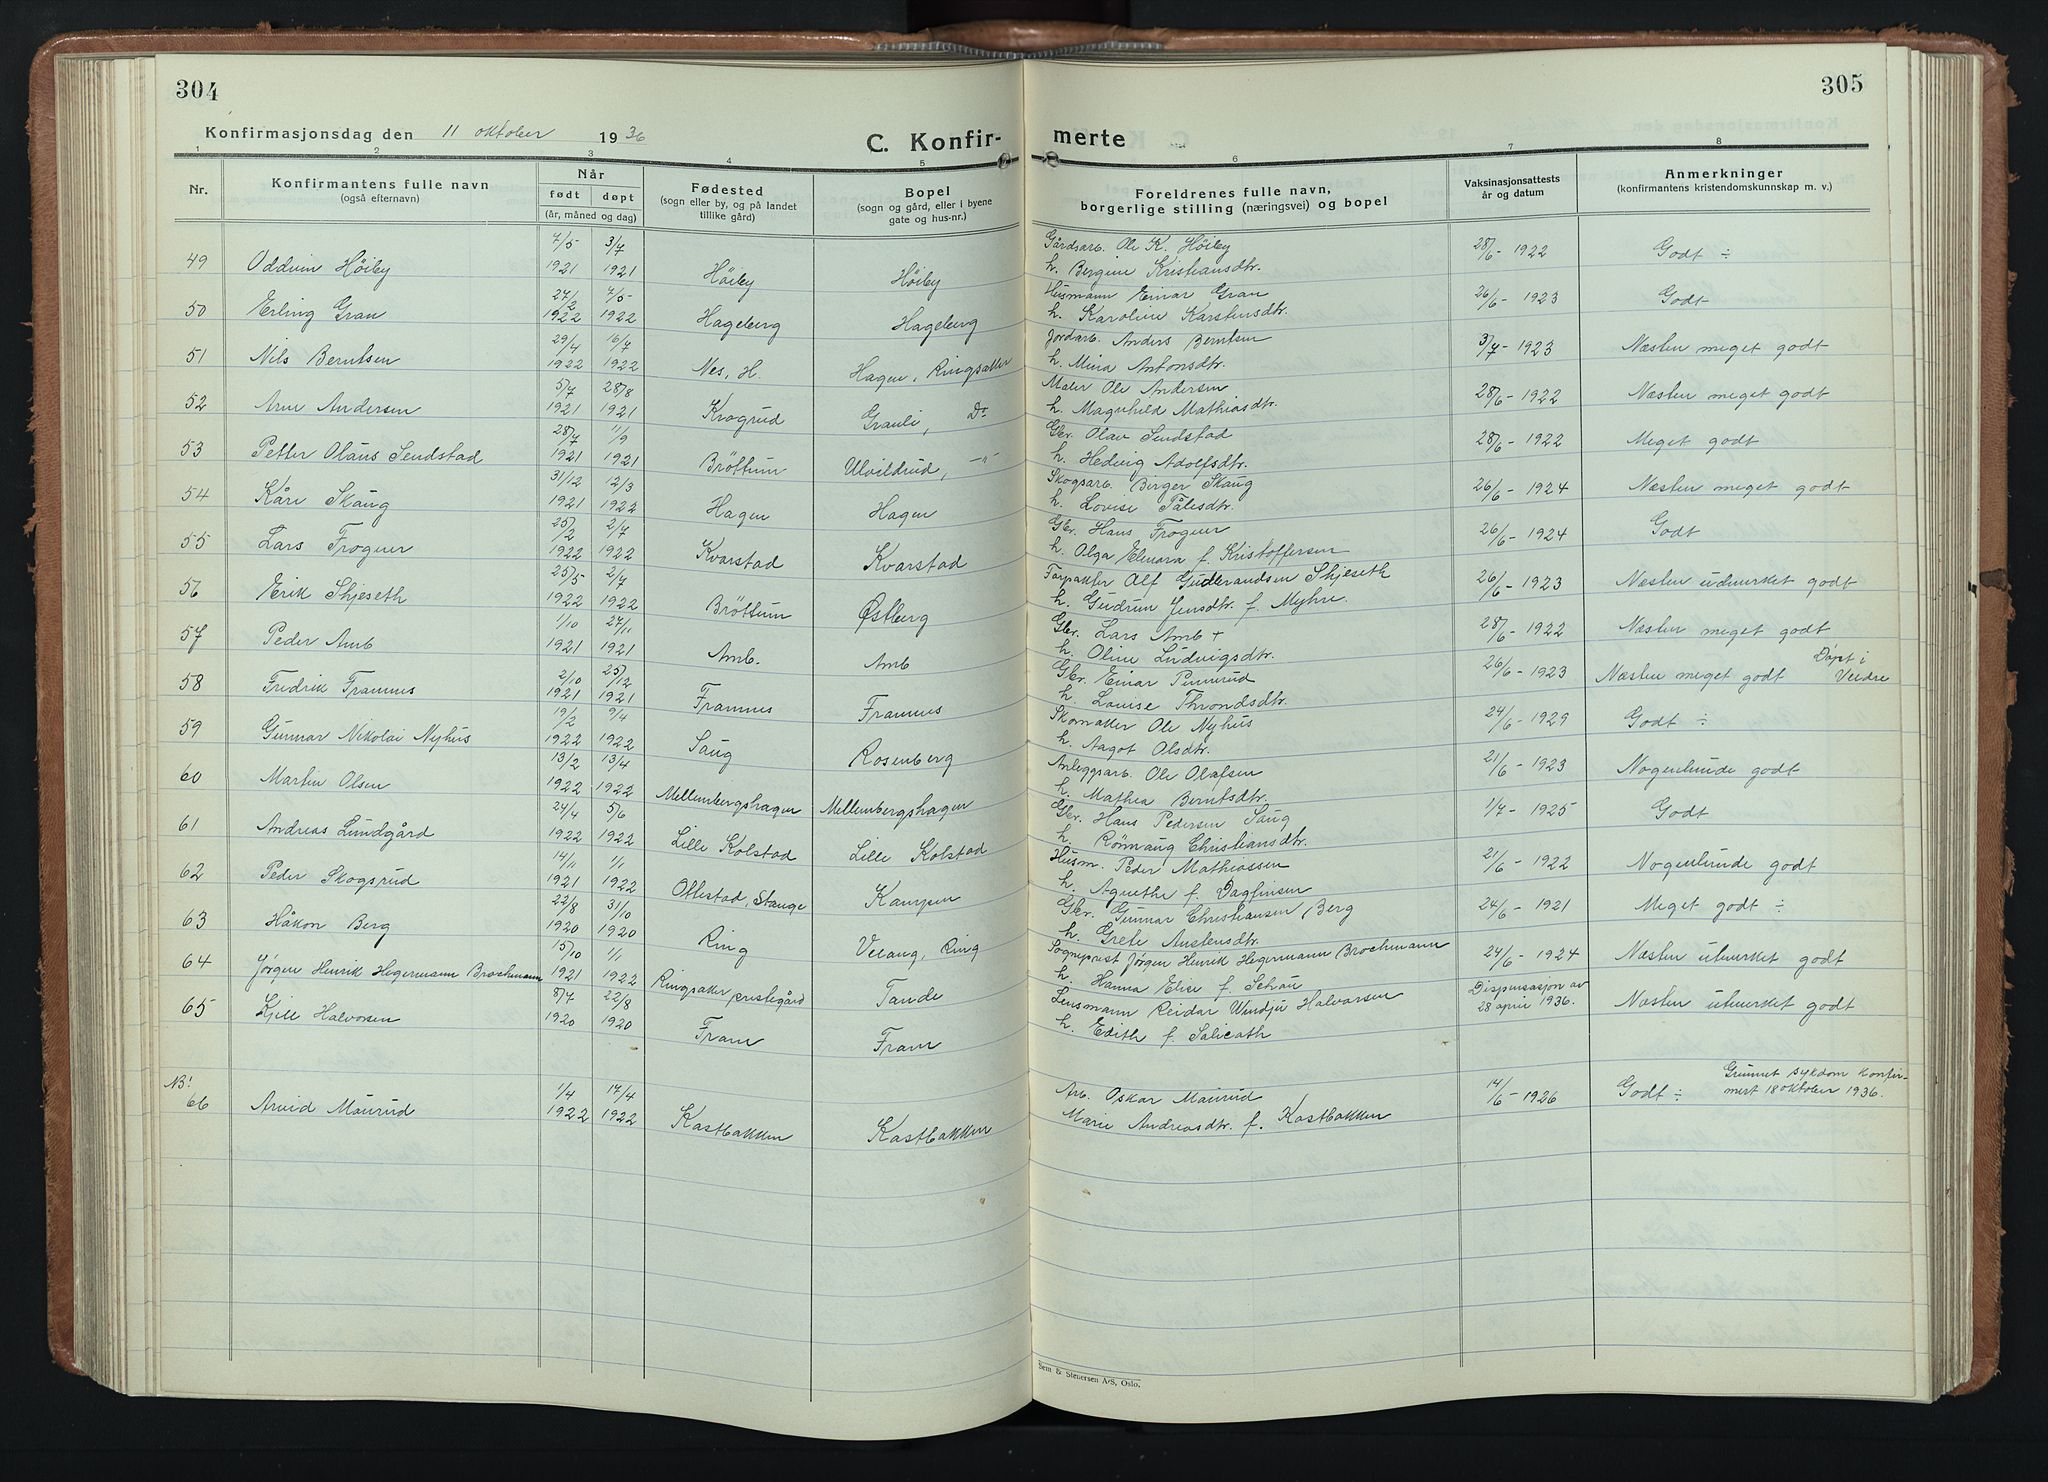 304
305
Konfirmasjonsdag den 11 oktober 1936
C. Konfir-
merte
1 2 3 4 5 6 7 8
Nr.
Konfirmantens fulle navn
(også efternavn)
Når
født døpt
(år, måned og dag)
Fødested
(sogn eller by, og på landet
tillike gård)
Bopel
(sogn og gård, eller i byene
gate og hus-nr.)
Foreldrenes fulle navn,
borgerlige stilling (næringsvei) og bopel
Vaksinasjonsattests
år og datum
Anmerkninger
(konfirmantens kristendomskunnskap m. v.)
7/5 3/7 Gårdsarb. Ole K. Høiby 28/6 - 1922 Godt ÷
49 Oddvin Høiby 1921 1921 Høiby Høiby h. Bergine Kristiansdtr.
27/2 7/5 Husmann Einar Gran 26/6 - 1923 Godt
50 Erling Gran 1922 1922 Hageberg Hageberg h. Karoline Karstensdtr.
29/4 16/7 Jordarb. Anders Berntsen 3/7 - 1923 Næsten meget godt
51 Nils Berntsen 1922 1922 Nes, H. Hagen, Ringsaker h. Mina Antonsdtr.
5/7 28/8 Maler Ole Andersen 28/6 - 1922 Næsten meget godt
52 Arne Andersen 1921 1921 Krogrud Grauli, Do h. Magnhild Mathiasdtr.
28/7 11/9 Gbr. Olav Sendstad 28/6 - 1922 Meget godt
53 Petter Olaus Sendstad 1921 1921 Brøttum Ulvildrud, -"- h. Hedvig Adolfsdtr.
31/12 12/3 Skogsarb. Birger Skaug 26/6 - 1924 Næsten meget godt
54 Kåre Skaug 1921 1922 Hagen Hagen h. Lovise Pålsdtr.
25/2 2/7 Gbr. Hans Frogner 26/6 - 1924 Godt
55 Lars Frogner 1922 1922 Kvarstad Kvarstad h. Olga Elnora f. Kristoffersen
25/5 2/7 Forpakter Alf Gudbrandsen Skjeseth 26/6 - 1923 Næsten udmerket godt
56 Erik Skjeseth 1922 1922 Brøttum Østberg h. Gudrun Jensdtr. f. Myhre.
1/10 27/11 Gbr. Lars Amb + 28/6 - 1922 Næsten meget godt
57 Peder Amb 1921 1921 Amb. Amb h. Oline Ludvigsdtr.
2/10 25/12 Gbr. Einar Pinnerud 26/6 - 1923 Næsten meget godt Døpt i Veldre
58 Fredrik Framnes 1921 1921 Framnes Framnes h. Louise Throndsdtr.
19/2 9/4 Skomaker Ole Nyhus 24/6 - 1929 Godt ÷
59 Gunnar Nikolai Nyhus 1922 1922 Saug Rosenberg h. Aagot Olsdtr.
13/2 13/4 Anleggsarb. Ole Olafsen 21/6 - 1923 Nogenlunde godt
60 Martin Olsen 1922 1922 Mellembergshagen Mellembergshagen h. Mathea Berntsdtr.
24/4 5/6 Gbr. Hans Pedersen Saug 1/7 - 1925 Godt
61 Andreas Lundgård 1922 1922 Lille Kolstad Lille Kolstad h. Rønnaug Christiansdtr.
14/11 1/1 Husm. Peder Mathiassen 21/6 - 1922 Nogenlunde godt
62 Peder Skogsrud 1921 1922 Ottestad, Stange Kampen h. Agnethe f. Dagfinsen
22/8 31/10 Gbr. Gunnar Christiansen Berg 24/6 - 1921 Meget godt ÷
63 Håkon Berg 1920 1920 Ring Velang, Ring h. Grete Austensdtr.
15/10 1/1 Sogneprest Jørgen Henrik Hegermann Brochmann 24/6 - 1924 Næsten utmerket godt
64 Jørgen Henrik Hegermann Brochmann 1921 1922 Ringsaker prestegård Tande h. Hanna Elise f. Schau
8/7 22/8 Lensmann Reidar Windju Halvorsen Dispensasjon av 28 april 1936. Næsten utmerket godt
65 Kjell Halvorsen 1920 1920 Fram Fram h. Edith f. Salicath
NB! 1/4 17/4 Arb. Oskar Maurud 14/6 - 1926 Godt ÷ Grunnet sykdom konfir-
mert 18 oktober 1936.
66 Arvid Maurud 1922 1922 Kastbakken Kastbakken Marie Andreasdtr. f. Kastbakken
Sem & Stenersen A/S, Oslo.